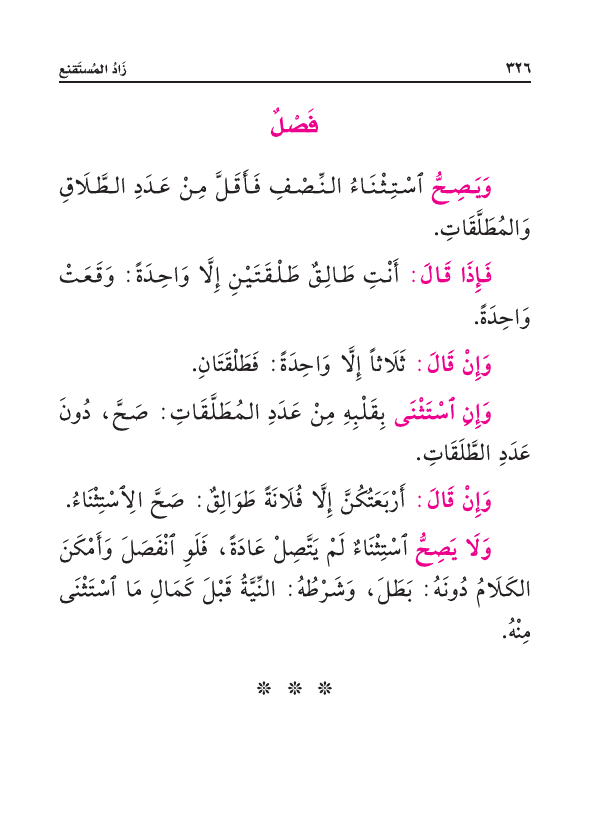 ٣٢٦ زَادُ المُستَقنِعِ
فَصْلٌ
وَيَصِحُّ ٱسْتِثْنَاءُ النِّصْفِ فَأَقَلَّ مِنْ عَدَدِ الطَّلَاقِ
وَالمُطَلَّقَاتِ.
فَإِذَا قَالَ: أَنْتِ طَالِقٌ طَلْقَتَيْنِ إِلَّا وَاحِدَةً: وَقَعَتْ
وَاحِدَةً.
وَإِنْ قَالَ: ثَلَاثاً إِلَّا وَاحِدَةً: فَطَلْقَتَانِ.
وَإِنِ ٱسْتَثْنَى بِقَلْبِهِ مِنْ عَدَدِ المُطَلَّقَاتِ: صَحَّ، دُونَ
عَدَدِ الطَّلَقَاتِ.
وَإِنْ قَالَ: أَرْبَعَتُكُنَّ إِلَّا فُلَانَةً طَوَالِقٌ: صَحَّ الِٱسْتِثْنَاءُ.
وَلَا يَصِحُّ ٱسْتِثْنَاءٌ لَمْ يَتَّصِلْ عَادَةً، فَلَوِ ٱنْفَصَلَ وَأَمْكَنَ
الكَلَامُ دُونَهُ: بَطَلَ، وَشَرْطُهُ: النِّيَّةُ قَبْلَ كَمَالِ مَا ٱسْتَثْنَى
مِنْهُ.